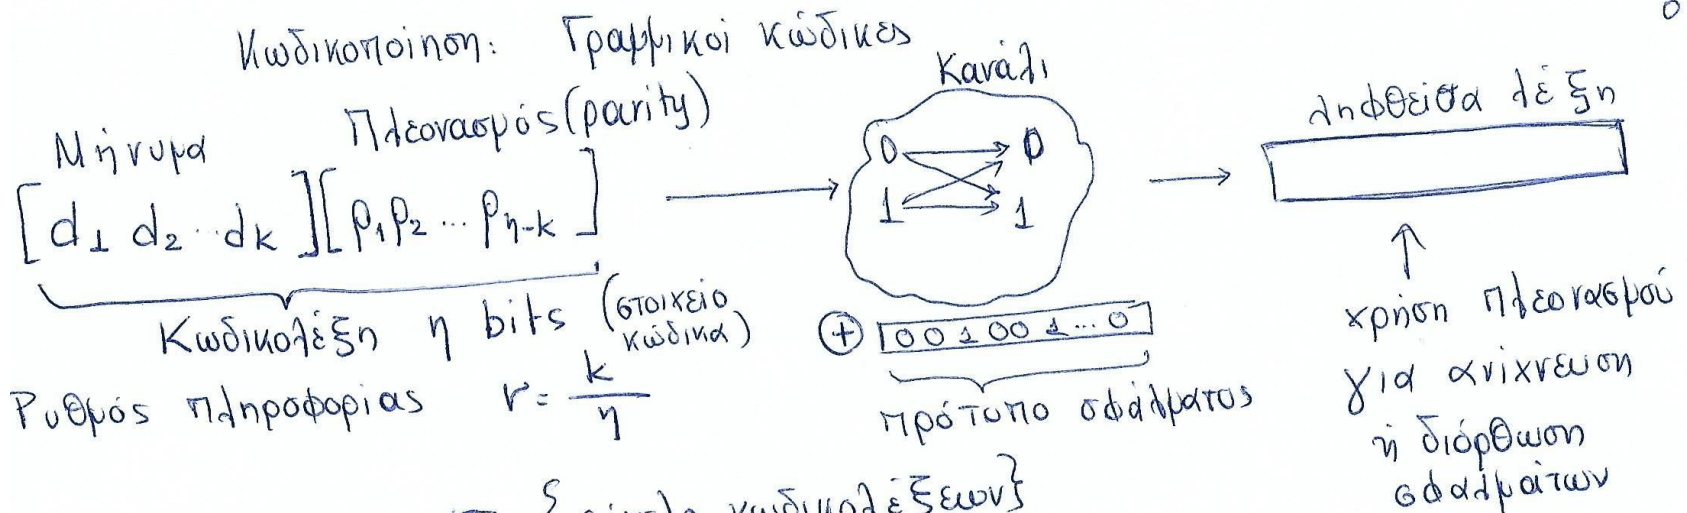 Κωδικοποίηση: Γραμμικοί κώδικες
Μήνυμα
Πλεονασμός (parity)
[d1 d2 ·· dk][p1 p2 ... pn-k]
Κωδικολέξη n bits (στοιχείο κώδικα)
Ρυθμός πληροφορίας r = k/n
Κανάλι
0 0
1 1
⊕ 0 0 1 0 0 1 ... 0
πρότυπο σφάλματος
ληφθείσα λέξη
χρήση πλεονασμού
για ανίχνευση
ή διόρθωση
σφαλμάτων
κωδικολέξεων}